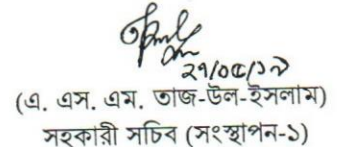 ২৭/০৫/১৯
(এ. এস. এম. তাজ-উল-ইসলাম)
সহকারী সচিব (সংস্থাপন-১)